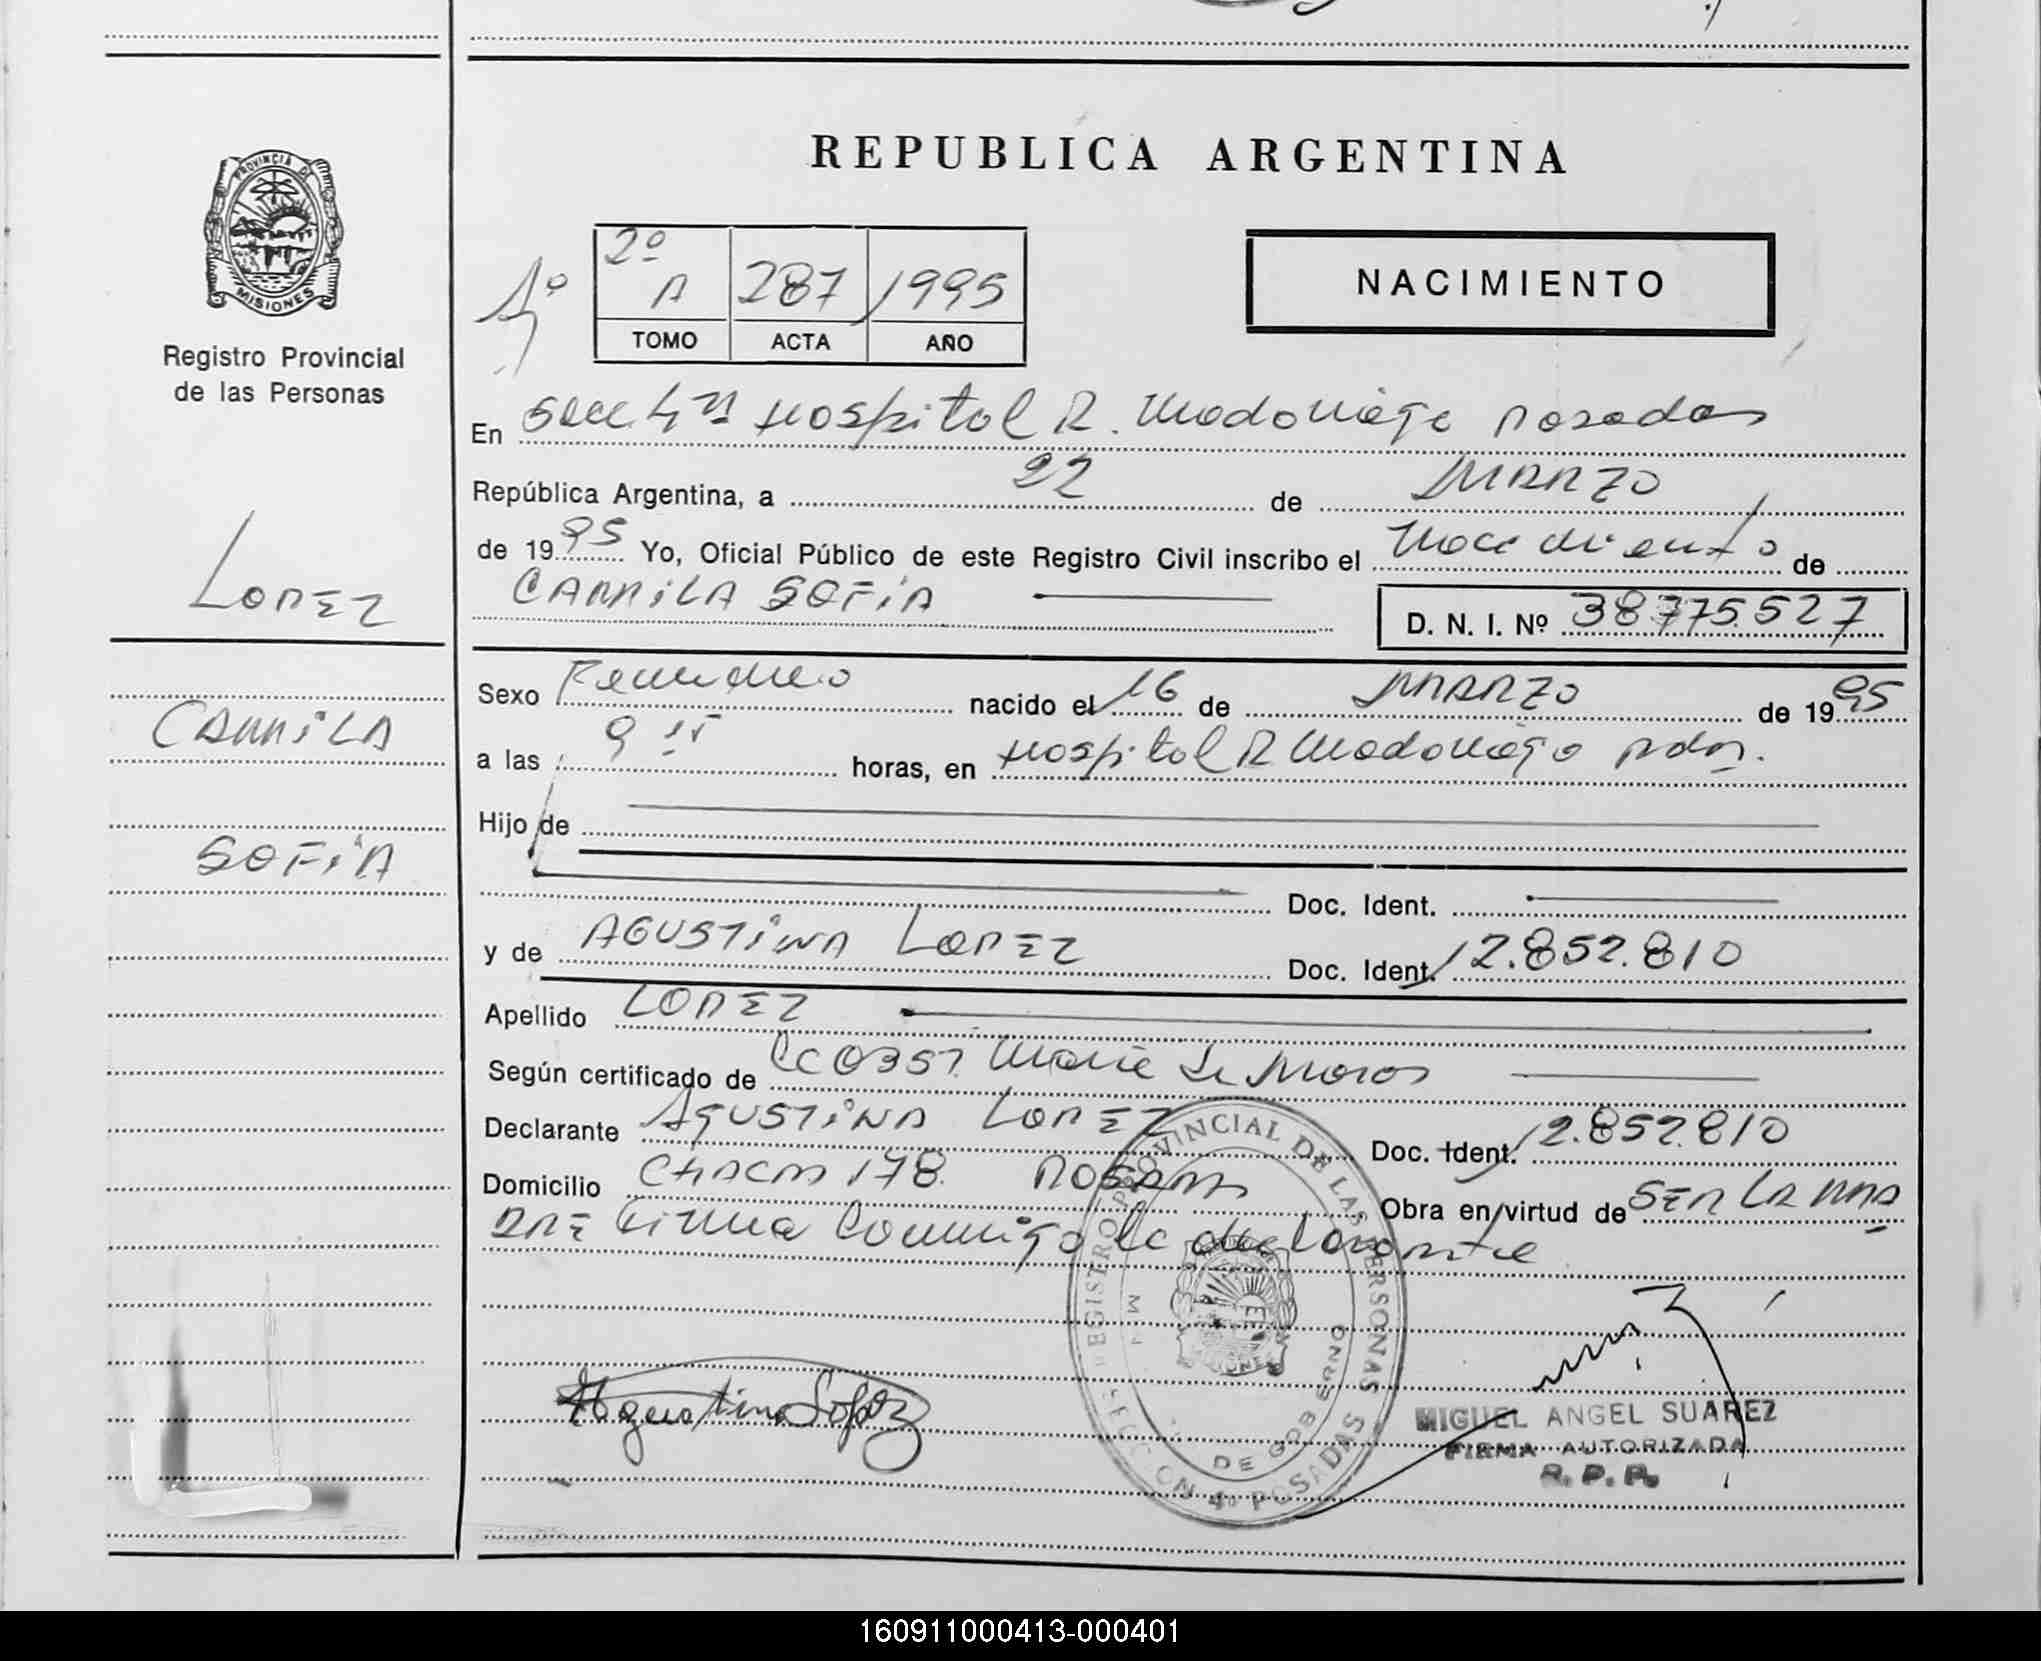 REPUBLICA ARGENTINA
PROVINCIA DE
MISIONES
Registro Provincial
de las Personas
1º
2º A 287 1995
TOMO ACTA AÑO
NACIMIENTO
En Secc 4ta Hospital R. Madariaga Posadas
República Argentina, a 22 de MARZO
de 1995 Yo, Oficial Público de este Registro Civil inscribo el Nacimiento de
CAMILA SOFIA
D. N. I. Nº 38775.527
LOPEZ
CAMILA
SOFIA
Sexo Femenino nacido el 16 de MARZO de 1995
a las 9 15 horas, en Hospital R Madariaga Pdas.
Hijo de
Doc. Ident.
y de AGUSTINA LOPEZ Doc. Ident. 12.852.810
Apellido LOPEZ
Según certificado de OBST. de
Declarante AGUSTINA LOPEZ Doc. Ident. 12.852.810
Domicilio CHACRA 178. POSADAS Obra en virtud de SER LA MA
DRE Firma Conmigo la declarante
Agustina Lopez
REGISTRO PROVINCIAL DE LAS PERSONAS
SECCION 4º POSADAS
DE GOBIERNO
MISIONES
MIGUEL ANGEL SUAREZ
FIRMA AUTORIZADA
R. P. P.
160911000413-000401